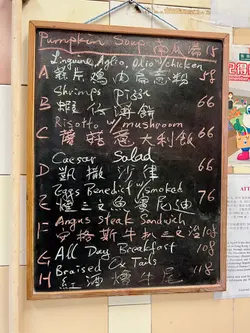 Pumpkin Soup 南瓜湯 15
Linguine, Aglio, Olio w/chicken
A 蒜片鷄油意粉 58
Shrimps Pizza
B 蝦仁薄餅 66
Risotto w/mushroom
C 蘑菇意大利飯 66
Caesar Salad
D 凱撒沙律 66
Eggs Benedict w/smoked
E 煙三文魚賓尼迪 76
Angus Steak Sandwich
F 安格斯牛扒三文治 108
G All Day Breakfast 108
Braised Ox Tails
H 紅酒燴牛尾 118